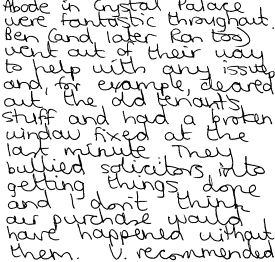 Abode in Crystal Palace
were fantastic throughout.
Ben (and later Ran too)
went out of their way
to help with any issues
and, for example, cleared
out the old tenant's
stuff and had a broken
window fixed at the
last minute. They
bullied solicitors into
getting things done
and I don't think
our purchase would
have happened without
them. V. recommended